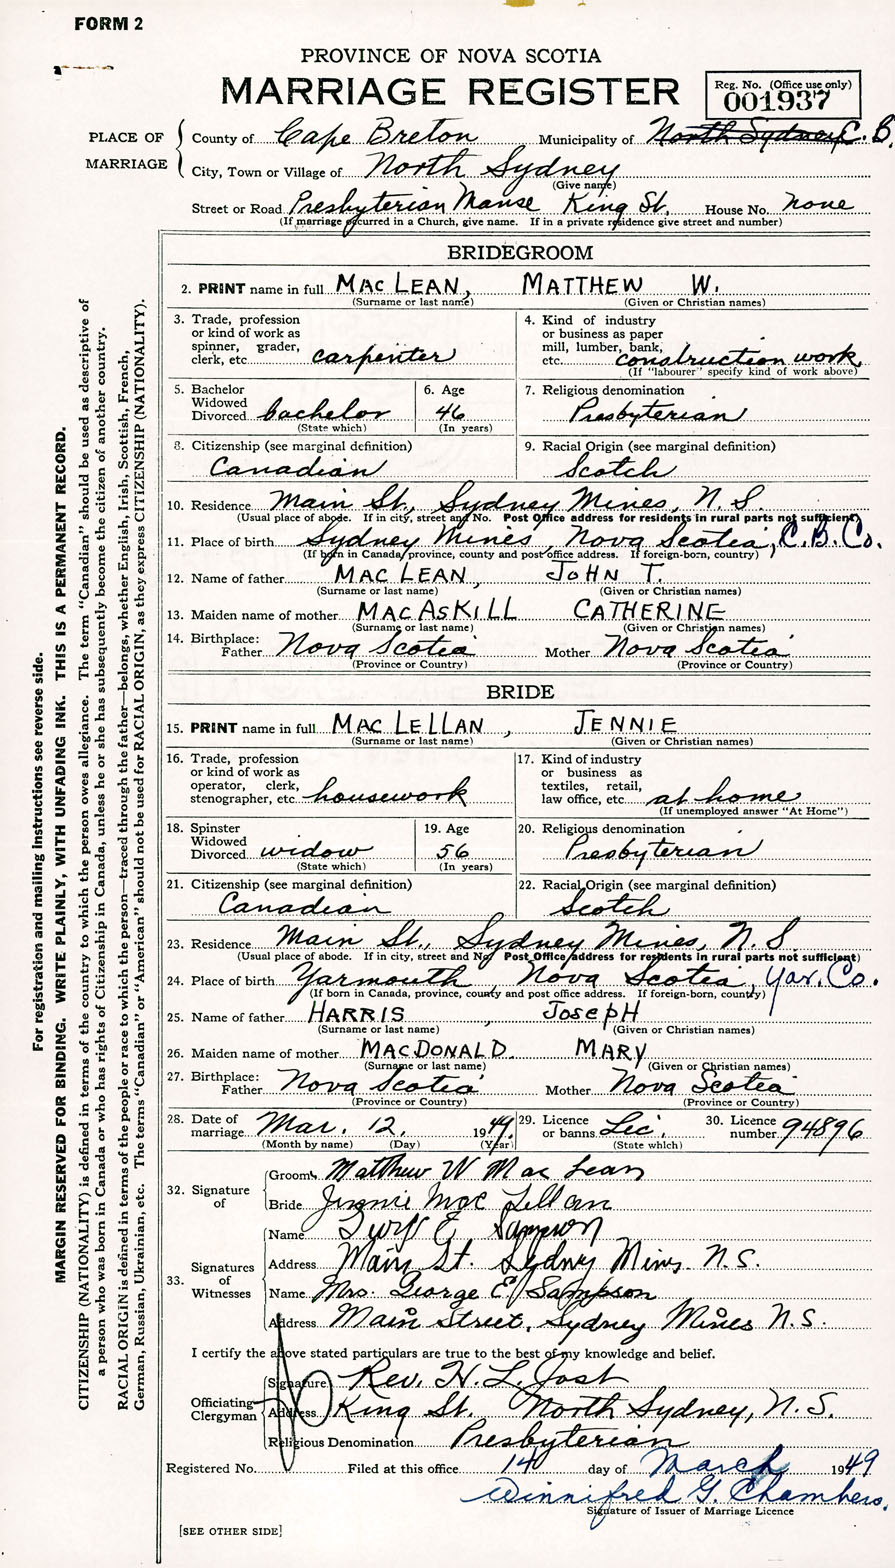 FORM 2
PROVINCE OF NOVA SCOTIA
MARRIAGE REGISTER
Reg. No. (Office use only)
001937
PLACE OF MARRIAGE
County of Cape Breton Municipality of North Sydney C. B.
City, Town or Village of North Sydney
(Give name)
Street or Road Presbyterian Manse King St. House No. none
(If marriage occurred in a Church, give name. If in a private residence give street and number)
BRIDEGROOM
2. PRINT name in full MACLEAN, MATTHEW W.
(Surname or last name) (Given or Christian names)
3. Trade, profession
or kind of work as
spinner, grader,
clerk, etc. carpenter
4. Kind of industry
or business as paper
mill, lumber, bank,
etc. construction work
(If "labourer" specify kind of work above)
5. Bachelor
Widowed
Divorced bachelor
(State which)
6. Age
46
(In years)
7. Religious denomination
Presbyterian
8. Citizenship (see marginal definition)
Canadian
9. Racial Origin (see marginal definition)
Scotch
10. Residence Main St., Sydney Mines, N. S.
(Usual place of abode. If in city, street and No. Post Office address for residents in rural parts not sufficient)
11. Place of birth Sydney Mines, Nova Scotia, C.B. Co.
(If born in Canada, province, county and post office address. If foreign-born, country)
12. Name of father MACLEAN, JOHN T.
(Surname or last name) (Given or Christian names)
13. Maiden name of mother MACASKILL CATHERINE
(Surname or last name) (Given or Christian names)
14. Birthplace:
Father Nova Scotia Mother Nova Scotia
(Province or Country) (Province or Country)
BRIDE
15. PRINT name in full MACLELLAN, JENNIE
(Surname or last name) (Given or Christian names)
16. Trade, profession
or kind of work as
operator, clerk,
stenographer, etc. housework
17. Kind of industry
or business as
textiles, retail,
law office, etc. at home
(If unemployed answer "At Home")
18. Spinster
Widowed
Divorced widow
(State which)
19. Age
56
(In years)
20. Religious denomination
Presbyterian
21. Citizenship (see marginal definition)
Canadian
22. Racial Origin (see marginal definition)
Scotch
23. Residence Main St., Sydney Mines, N. S.
(Usual place of abode. If in city, street and No. Post Office address for residents in rural parts not sufficient)
24. Place of birth Yarmouth, Nova Scotia, Yar. Co.
(If born in Canada, province, county and post office address. If foreign-born, country)
25. Name of father HARRIS, JOSEPH
(Surname or last name) (Given or Christian names)
26. Maiden name of mother MACDONALD MARY
(Surname or last name) (Given or Christian names)
27. Birthplace:
Father Nova Scotia Mother Nova Scotia
(Province or Country) (Province or Country)
28. Date of
marriage Mar. 12, 1949.
(Month by name) (Day) (Year)
29. Licence
or banns Lic.
(State which)
30. Licence
number 94896
32. Signature
of
Groom Matthew W Mac Lean
Bride Jennie Mac Lellan
33. Signatures
of
Witnesses
Name E Sampson
Address Main St. Sydney Mines N.S.
Name Mrs. George E. Sampson
Address Main Street, Sydney Mines N.S.
I certify the above stated particulars are true to the best of my knowledge and belief.
Officiating
Clergyman
Signature Rev. H. L. Jost
Address King St. North Sydney, N. S.
Religious Denomination Presbyterian
Registered No. Filed at this office 14 day of March 1949
Winnifred G. Chambers.
Signature of Issuer of Marriage Licence
[SEE OTHER SIDE]
For registration and mailing instructions see reverse side.
MARGIN RESERVED FOR BINDING. WRITE PLAINLY, WITH UNFADING INK. THIS IS A PERMANENT RECORD.
CITIZENSHIP (NATIONALITY) is defined in terms of the country to which the person owes allegiance. The term "Canadian" should be used as descriptive of
a person who was born in Canada or who has rights of Citizenship in Canada, unless he or she has subsequently become the citizen of another country.
RACIAL ORIGIN is defined in terms of the people or race to which the person—traced through the father—belongs, whether English, Irish, Scottish, French,
German, Russian, Ukrainian, etc. The terms "Canadian" or "American" should not be used for RACIAL ORIGIN, as they express CITIZENSHIP (NATIONALITY).